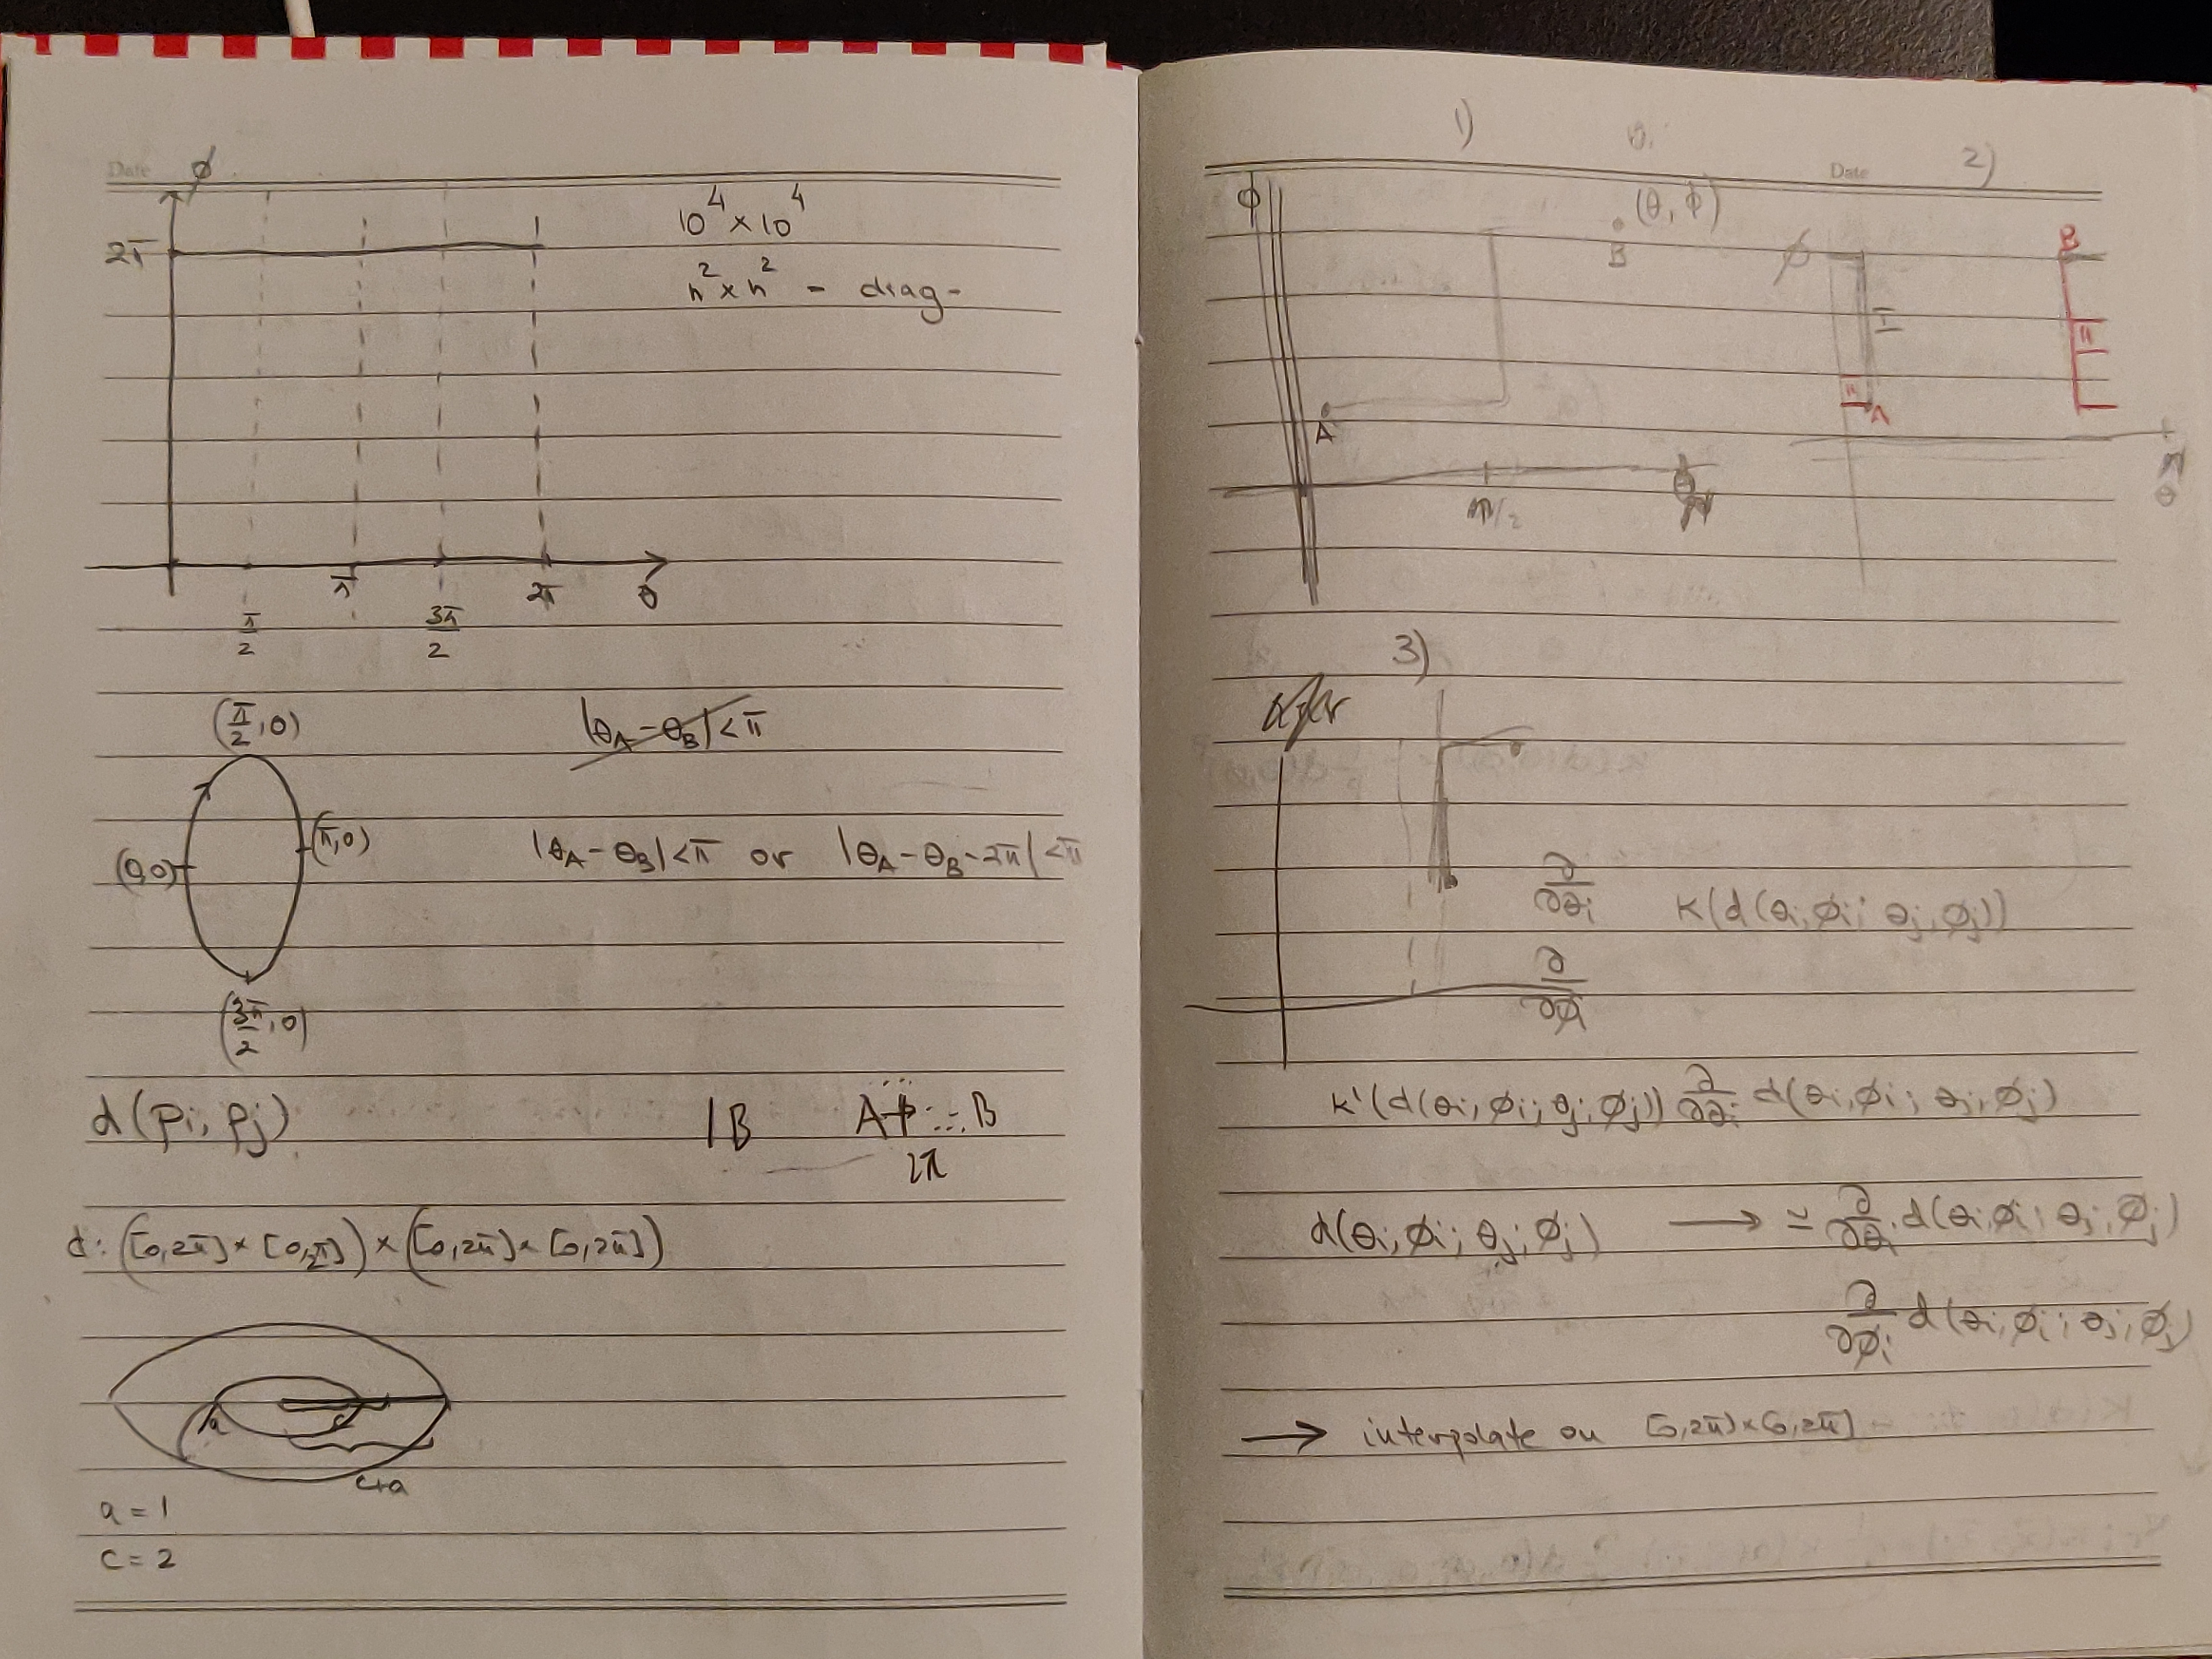 Date
φ
10^4 × 10^4
2π
n^2 × n^2 - diag -
π/2
π
3π/2
2π
θ
(π/2, 0)
|θ_A - θ_B| < π
(0,0)
(π, 0)
|θ_A - θ_B| < π or |θ_A - θ_B - 2π| < π
(3π/2, 0)
d(p_i, p_j)
B
A B
2π
d: ([0,2π] × [0,2π]) × ([0,2π] × [0,2π])
a
c
c+a
a = 1
c = 2
1)
θ_i
Date
2)
φ
(θ, φ)
B
φ
I
B
II
A
II
A
π/2
θ
π
π
θ
3)
∂/∂θ_i K(d(θ_i, φ_i; θ_j, φ_j))
∂/∂φ_i
K'(d(θ_i, φ_i; θ_j, φ_j)) ∂/∂θ_i d(θ_i, φ_i; θ_j, φ_j)
d(θ_i, φ_i; θ_j, φ_j) → ≃ ∂/∂θ_i d(θ_i, φ_i; θ_j, φ_j)
∂/∂φ_i d(θ_i, φ_i; θ_j, φ_j)
→ interpolate on [0,2π) × [0,2π]